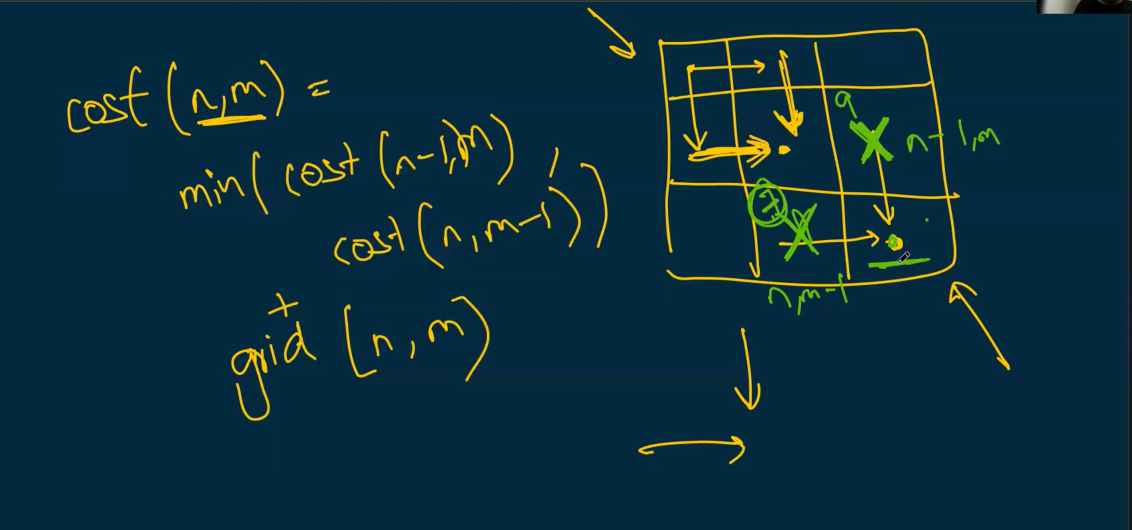 cost (n,m) =
min( cost (n-1,m) ,
cost (n,m-1))
+
grid (n,m)
9
n-1,m
7
n,m-1